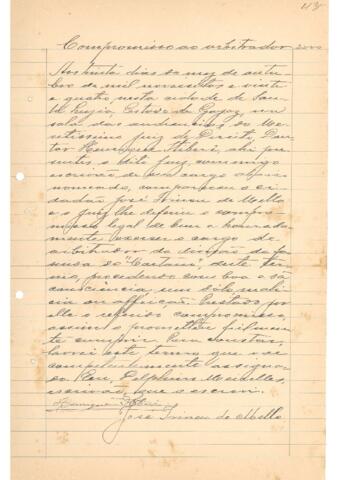 Compromisso ao arbitrador
Aos trinta dias do mez de outu-
bro de mil novecentos e vinte
e quatro, nesta cidade de San-
ta Luzia, Estado de Goyaz, em
sala das audiencias do Me-
ritissimo Juiz de Direito Dou-
tor Henrique, ahi pre-
sentes o dito Juiz, commigo
escrivão de seu cargo abaixo
nomeado, compareceu o ci-
dadão José Irineu de Mello
e o Juiz lhe deferiu o compro-
misso legal de bem e honrada-
mente exercer o cargo de
arbitrador da divisão da fa-
senda São Caetano, deste ter-
mo, procedendo com boa e sã
consciencia, sem dólo, mali-
cia ou affeição. Acceitado por
elle o referido compromisso,
assim o prometteu fielmen-
te cumprir. Para constar,
lavrei este termo que vae
competentemente assigna-
do. Eu, Delphino Meirelles,
escrivão, que o escrevi.
Henrique
José Irineu de Mello